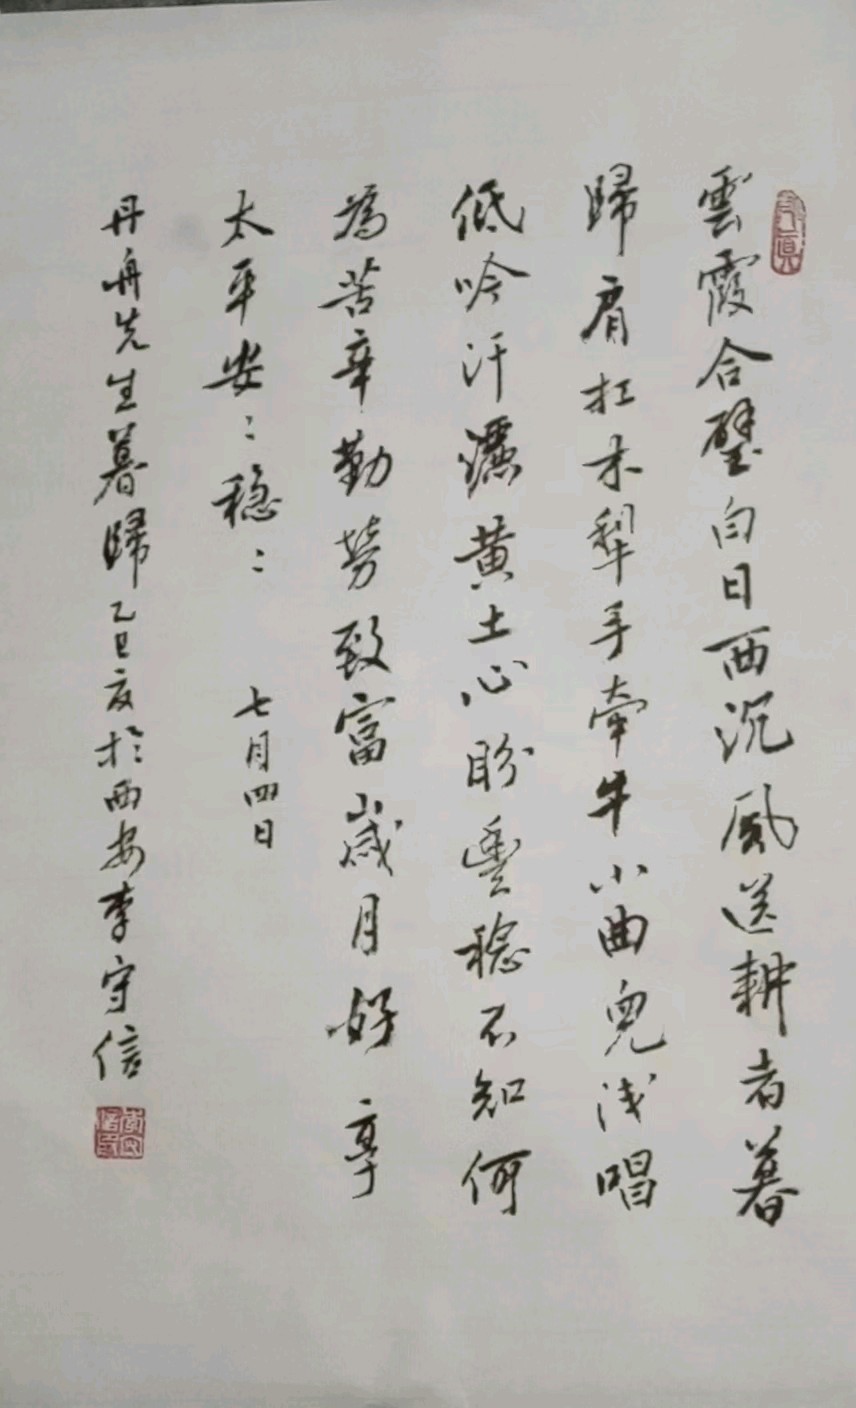 雲霞合璧白日西沉風送耕者暮
歸肩扛木犁手牽牛小曲兒浅唱
低吟汗灑黄土心盼豐稔不知何
為苦辛勤勞致富歲月好享
太平安:穏:
七月四日
丹舟先生暮歸乙巳夏於西安李守信